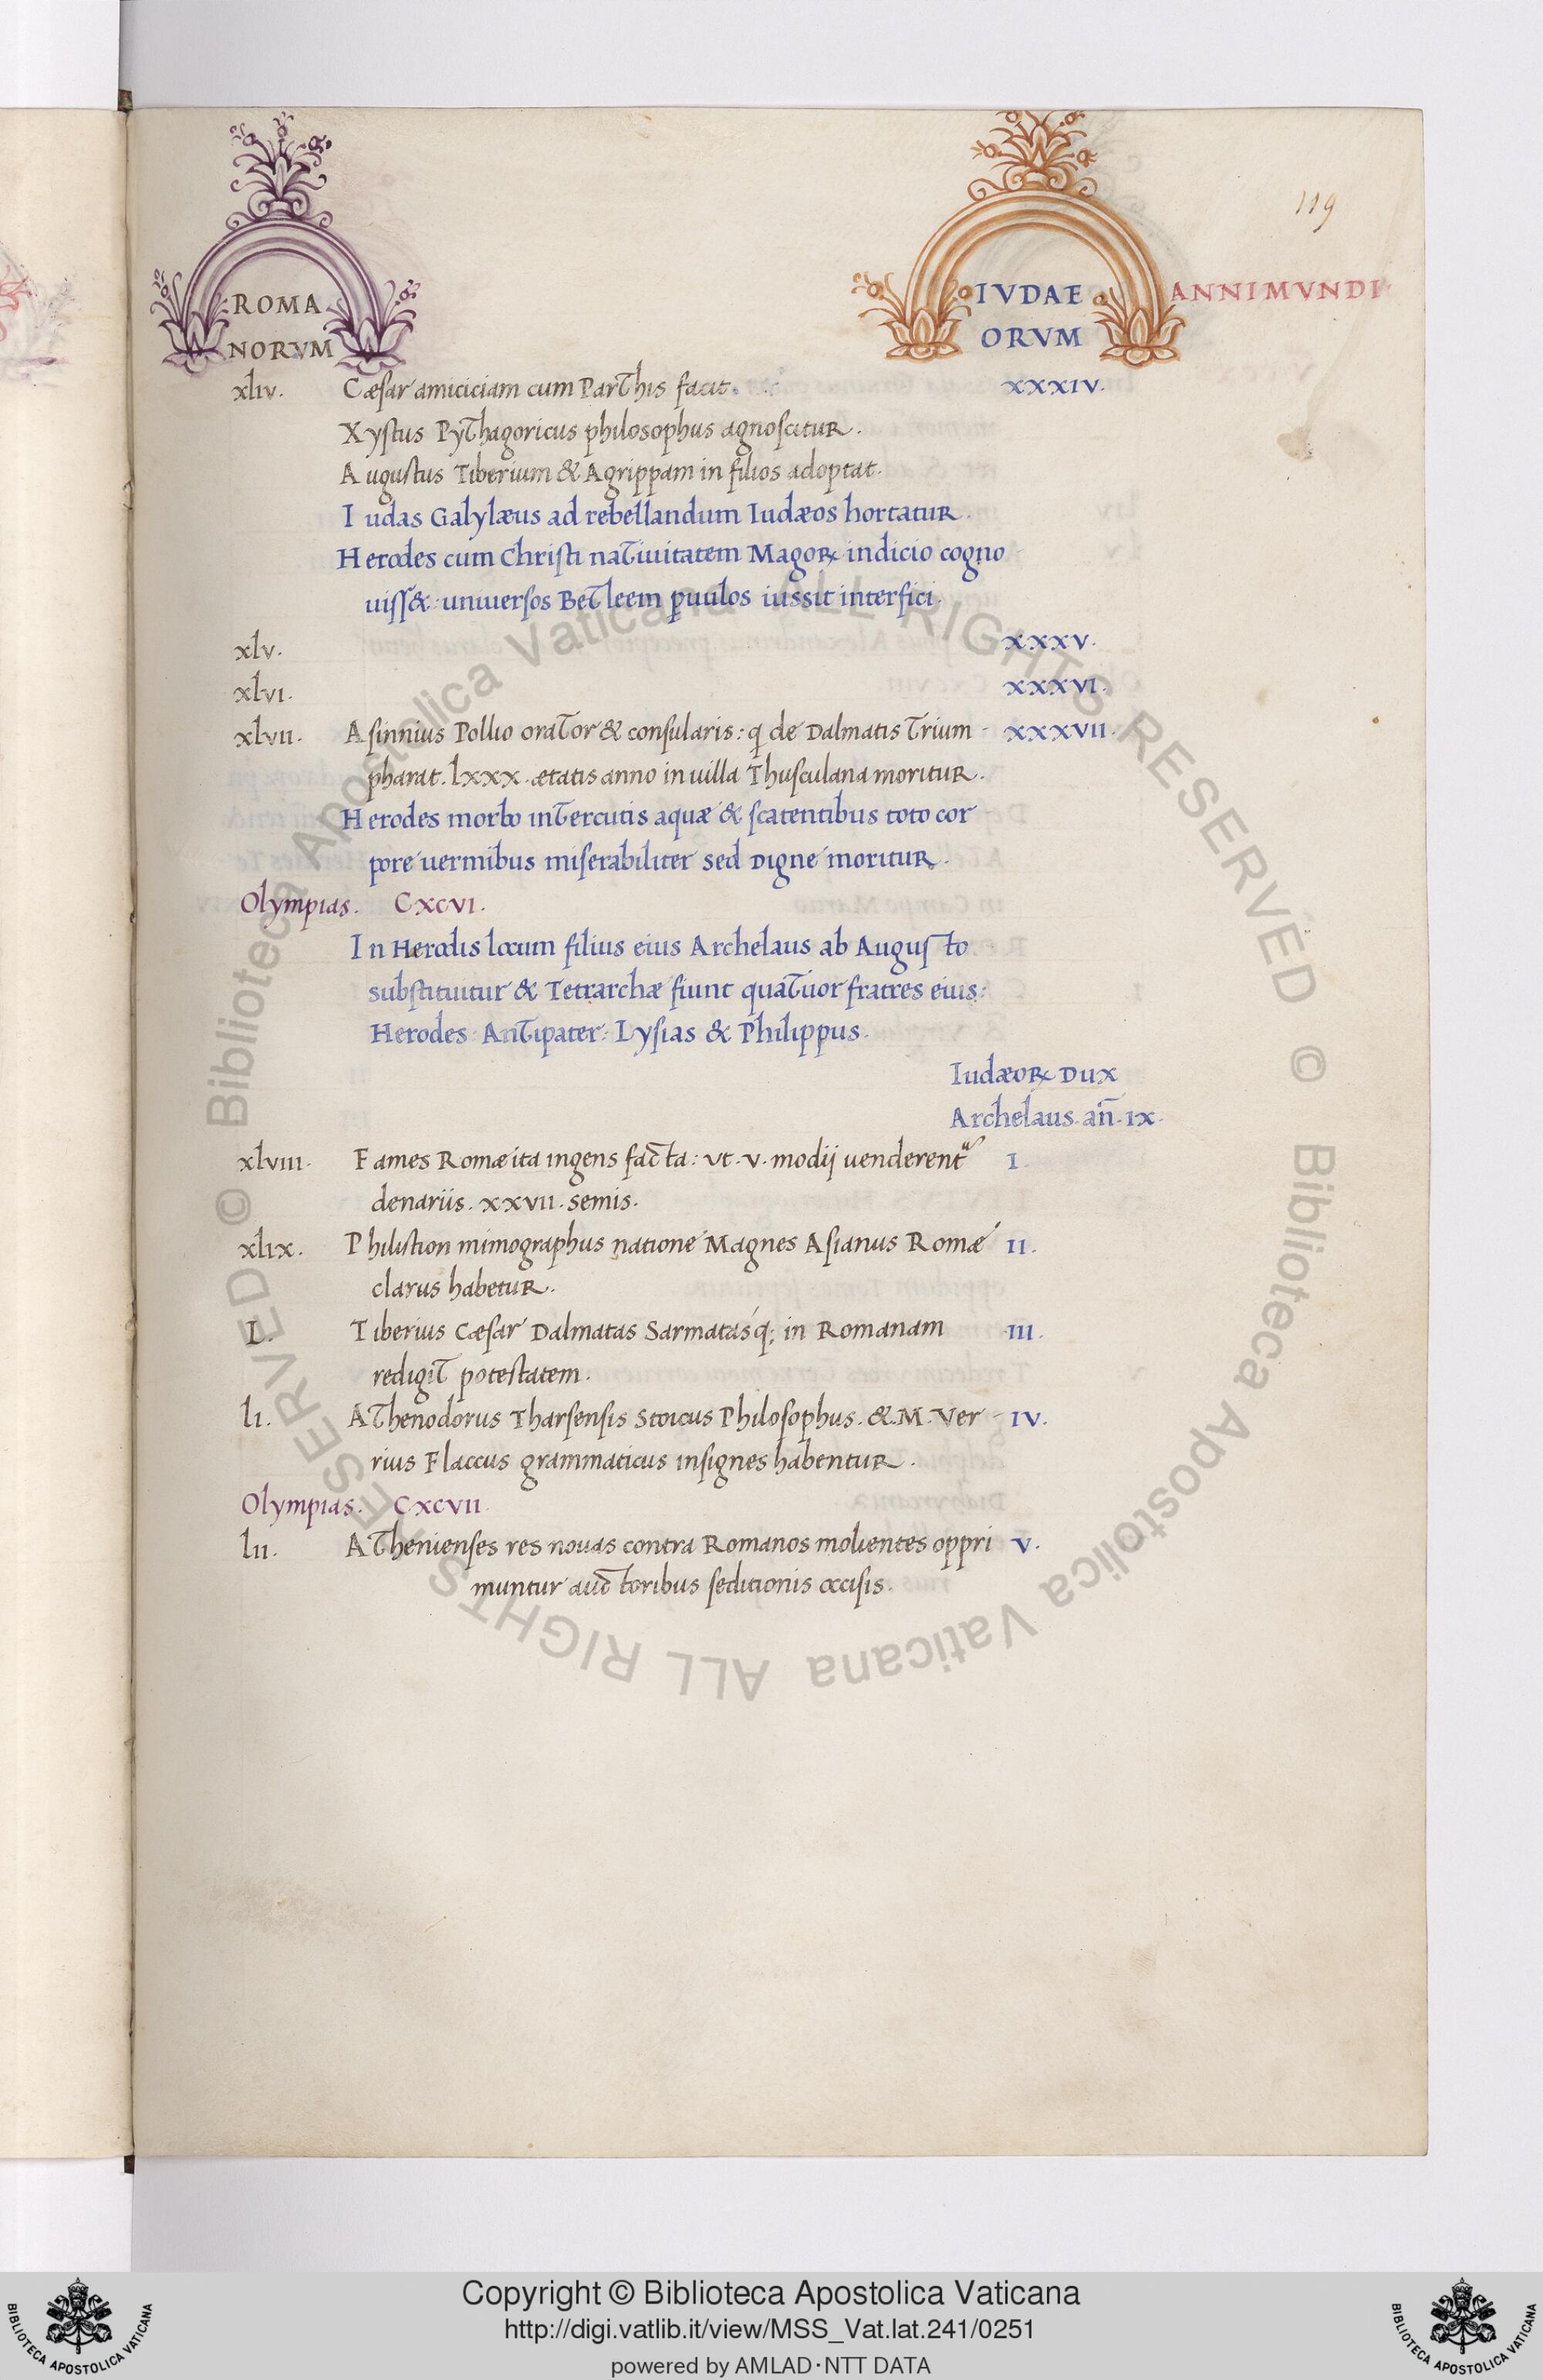 119
ROMA IVDAE ANNI MVNDI
NORVM ORVM
xliv. Cæsar amiciciam cum Parthis facit. XXXIV.
Xystus Pythagoricus philosophus agnoscitur.
Augustus Tiberium & Agrippam in filios adoptat.
Iudas Galylæus ad rebellandum Iudæos hortatur.
Herodes cum Christi natiuitatem Magoꝝ indicio cogno
uiss&: uniuersos Betleem ꝑuulos iussit interfici.
xlv. XXXV.
xlvi. XXXVI.
xlvii. Asinnius Pollio orator & consularis: q de Dalmatis Trium XXXVII.
pharat. lxxx. ætatis anno in uilla Thusculana moritur.
Herodes morbo intercutis aquæ & scatentibus toto cor
pore uermibus miserabiliter sed digne moritur.
Olympias. CXCVI.
In Herodis locum filius eius Archelaus ab Augusto
substituitur & Tetrarchæ fiunt quatuor fratres eius:
Herodes: Antipater: Lysias & Philippus.
Iudæoꝝ Dux
Archelaus. an̄. IX.
xlviii. Fames Romæ ita ingens facta: ut. v. modij uenderentᵘʳ I.
denariis. xxvii. semis.
xlix. Philistion mimographus natione Magnes Asianus Romæ II.
clarus habetur.
L. Tiberius Cæsar Dalmatas Sarmatasq; in Romanam III.
redigit potestatem.
li. Athenodorus Tharsensis Stoicus Philosophus. & M. Ver IV.
rius Flaccus grammaticus insignes habentur.
Olympias. CXCVII.
lii. Athenienses res nouas contra Romanos molientes oppri V.
muntur auctoribus seditionis occisis.
© Biblioteca Apostolica Vaticana ALL RIGHTS RESERVED © Biblioteca Apostolica Vaticana ALL RIGHTS RESERVED
Copyright © Biblioteca Apostolica Vaticana
http://digi.vatlib.it/view/MSS_Vat.lat.241/0251
powered by AMLAD·NTT DATA
BIBLIOTECA APOSTOLICA VATICANA
BIBLIOTECA APOSTOLICA VATICANA